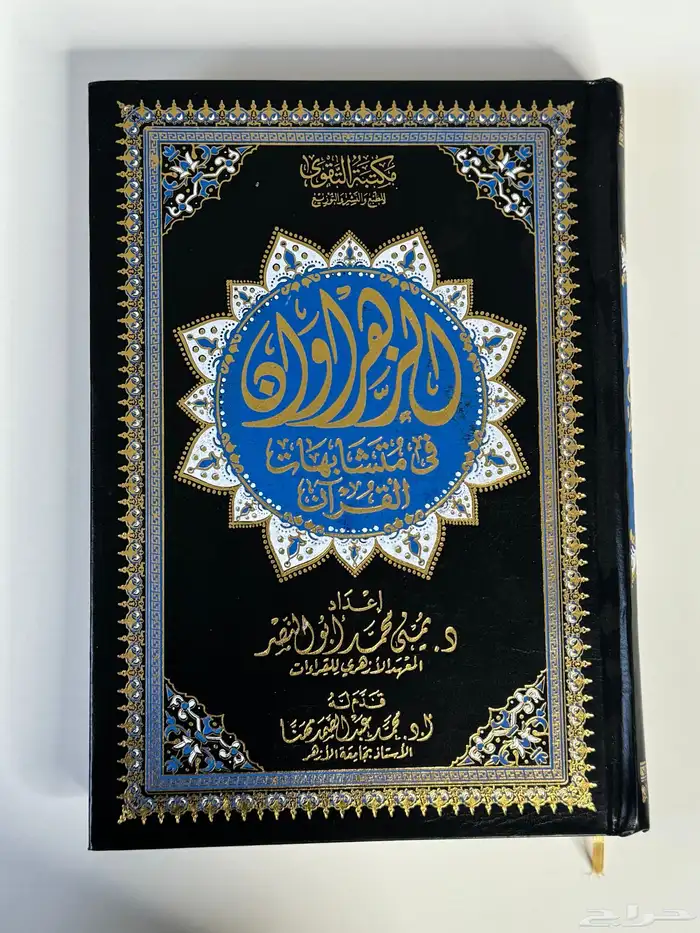 مكتبة التقوى
للطبع والنشر والتوزيع
الزهراوان
في متشابهات
القرآن
إعداد
د. يمنى محمد أبو النصر
المعهد الأزهري للقراءات
قدم له
أ.د. محمد عبد الصمد مهنا
الأستاذ بجامعة الأزهر
حراج